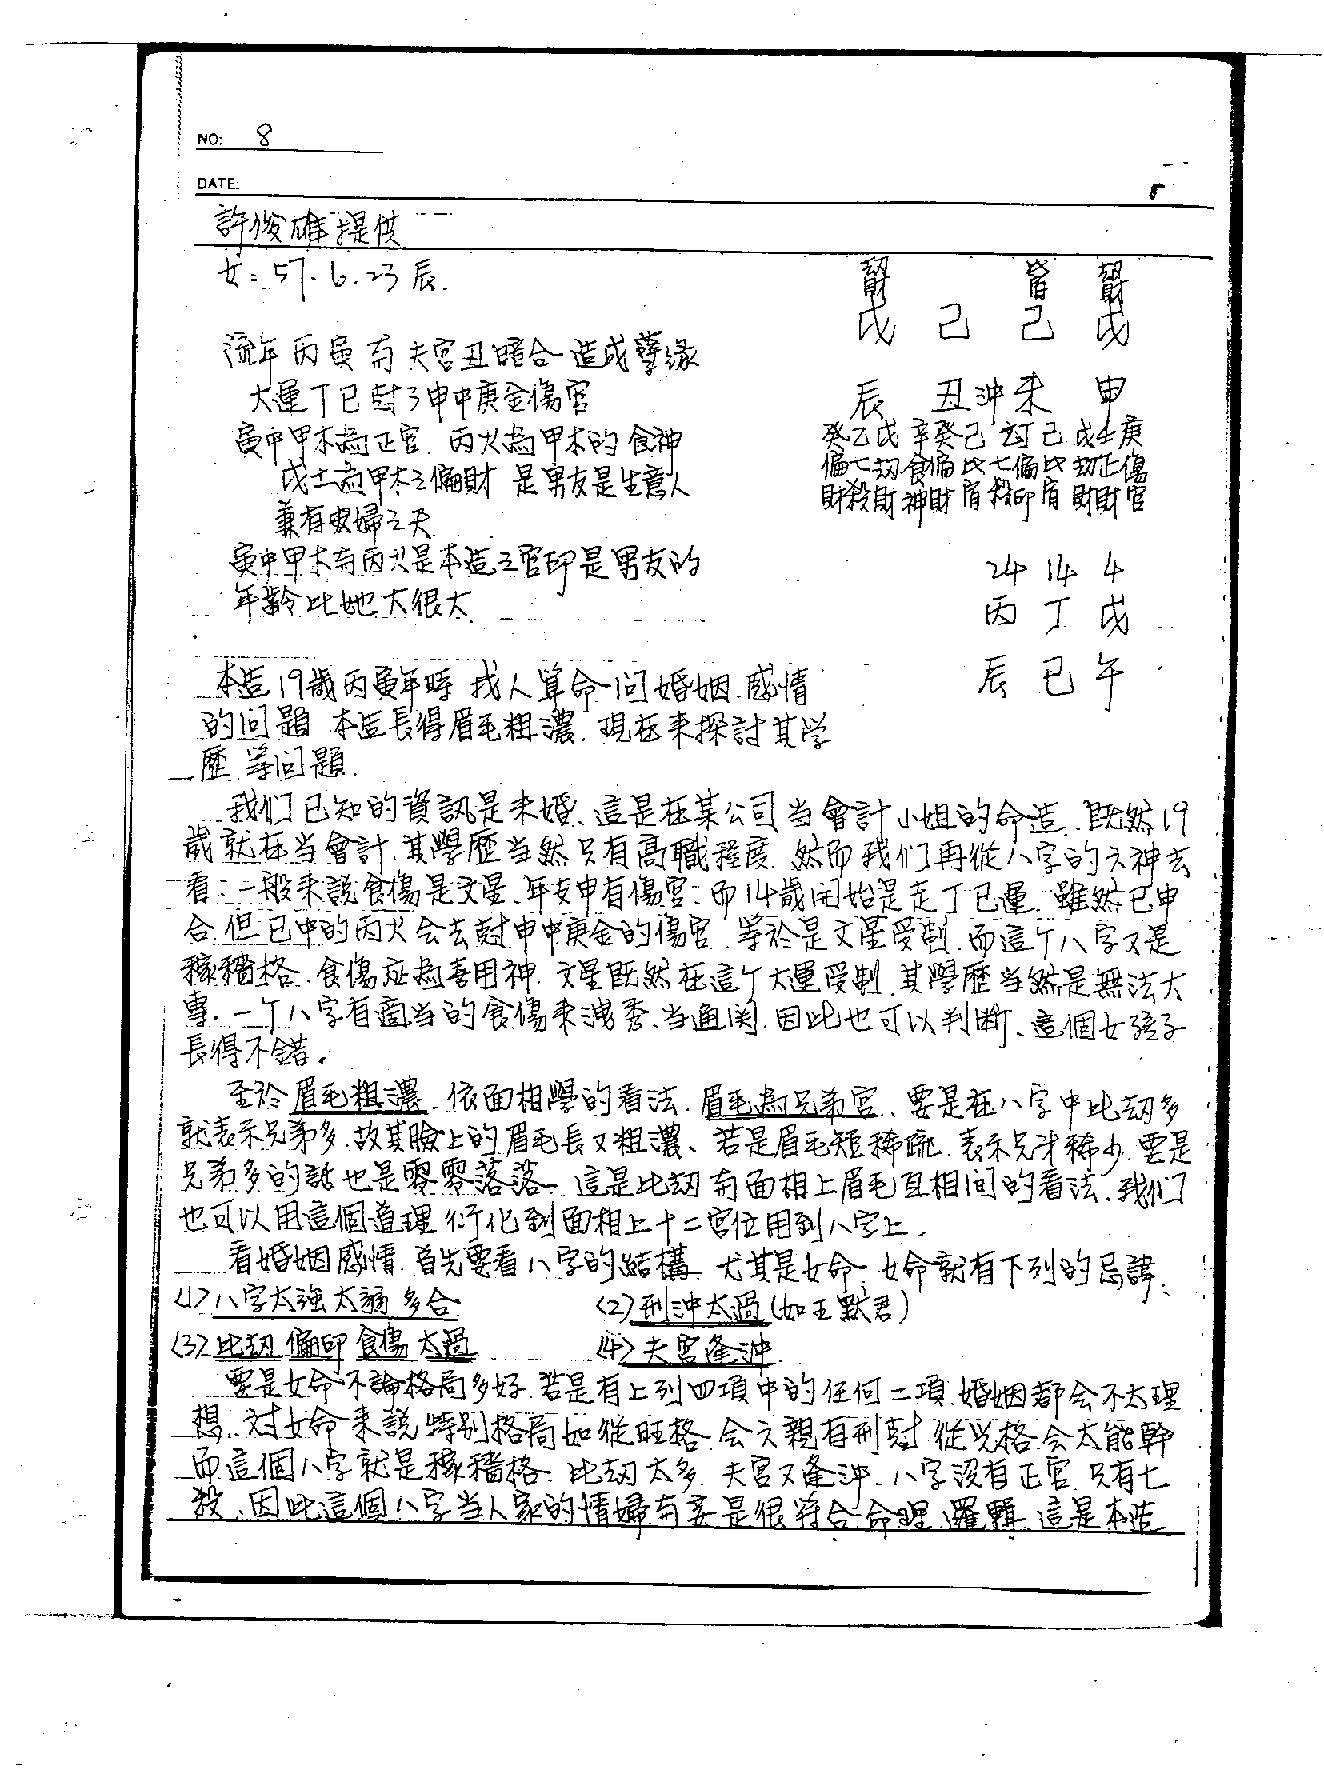 NO: 8
DATE:
許俊雄提供
女: 57.6.23 辰.
劫財 比肩 劫財
戊 己 己 戊
辰 丑冲未 申
癸乙戊 辛癸己 乙丁己 戊壬庚
偏七劫 食偏比 七偏比 劫正傷
財殺財 神財肩 殺印肩 財財官
24 14 4
丙 丁 戊
辰 巳 午
流年丙寅與夫宮丑暗合造成孽緣
大運丁巳尅了申中庚金傷官
寅中甲木為正官.丙火為甲木的食神
戊土為甲木之偏財 是男友是生意人
兼有婦之夫
寅中甲木與丙火是本造之官印是男友的
年齡比她大很大
本造19歲丙寅年時 找人算命問婚姻.感情
的问題 本造長得眉毛粗濃.現在來探討其学
歷 等问題.
我们已知的資訊是未婚、這是在某公司当會計小姐的命造.既然19
歲就在当會計.其學歷当然只有高職程度.然而我们再從八字的六神去
看:一般來說食傷是文星、年支申有傷官:而14歲開始是走丁巳運.雖然巳申
合.但巳中的丙火会去尅申中庚金的傷官.等於是文星受制.而這个八字又是
稼穡格.食傷應為喜用神.文星既然在這个大運受制.其學歷当然是無法大
專.一个八字有適当的食傷來洩秀、当通関.因此也可以判断、這個女孩子
長得不錯。
至於眉毛粗濃.依面相學的看法.眉毛為兄弟宮、要是在八字中比劫多
就表示兄弟多.故其臉上的眉毛長又粗濃、若是眉毛短稀疏.表示兄弟稀少.要是
兄弟多的話也是零零落落.這是比劫與面相上眉毛互相间的看法.我们
也可以用這個道理衍化到面相上十二宮位用到八字上.
看婚姻感情.首先要看八字的結構.尤其是女命.女命就有下列的忌諱、
(1)八字太強太弱多合 (2)刑冲太過(如王默君)
(3)比劫偏印食傷太過 (4)夫宮逢冲
要是女命不論格局多好.若是有上列四項中的任何二項.婚姻都会不太理
想、对女命來說特别格局如從旺格.会六親有刑尅.從兇格会太能幹
而這個八字就是稼穡格.比劫太多.夫宮又逢冲.八字沒有正官.只有七
殺、因此這個八字当人家的情婦與妾是很符合命理邏輯.這是本造